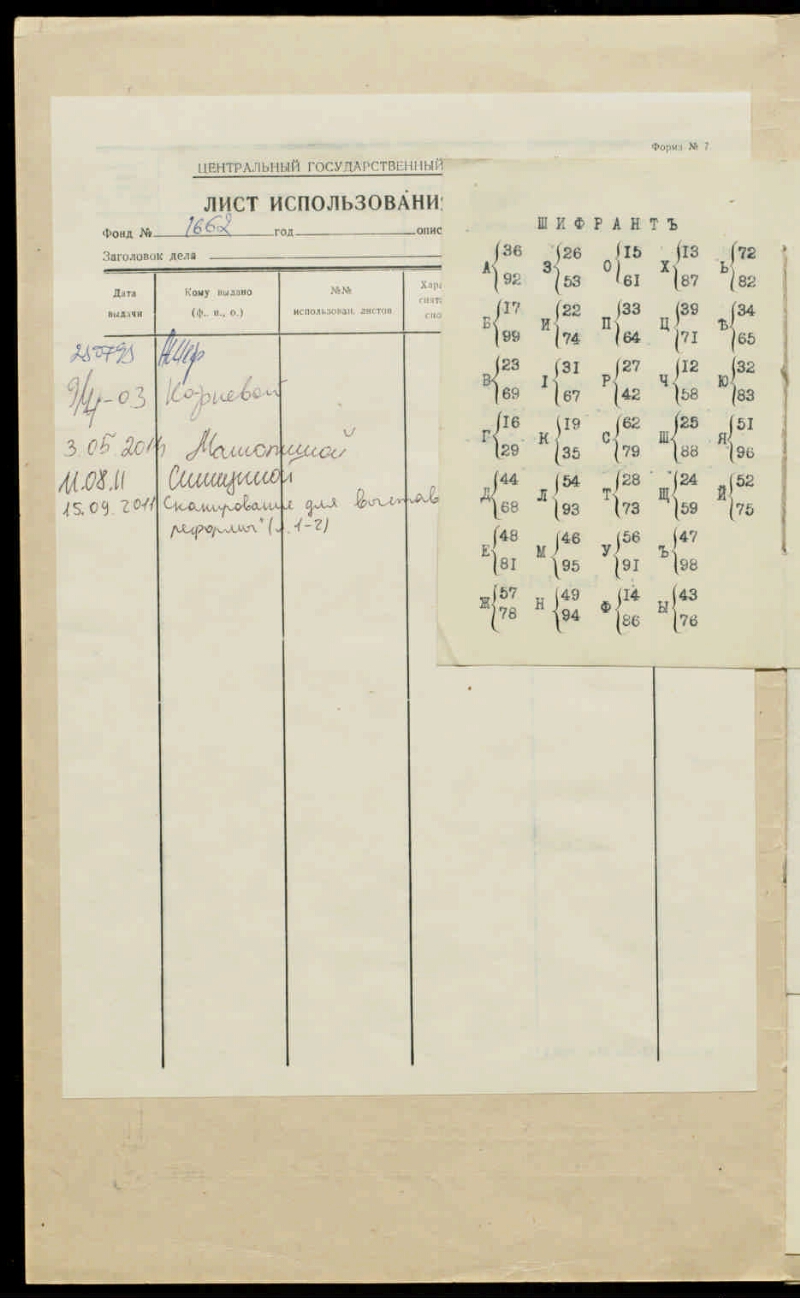 Форма № 7
ЦЕНТРАЛЬНЫЙ ГОСУДАРСТВЕННЫЙ
ЛИСТ ИСПОЛЬЗОВАНИ
Фонд № 1662 год опис
Заголовок дела
Дата выдачи
Кому выдано (ф., и., о.)
№№ использован. листов
9/IV-03
3 05 2011
11.08.11
15.09.2011 Сканирование для
(л. 1-2)
ШИФРАНТЪ
А 36 92 З 26 53 О 15 61 Х 13 87 Ь 72 82
Б 17 99 И 22 74 П 33 64 Ц 39 71 Ѣ 34 65
В 23 69 І 31 67 Р 27 42 Ч 12 58 Ю 32 83
Г 16 29 К 19 35 С 62 79 Ш 25 88 Я 51 96
Д 44 68 Л 54 93 Т 28 73 Щ 24 59 Й 52 75
Е 48 81 М 46 95 У 56 91 Ъ 47 98
Ж 57 78 Н 49 94 Ф 14 86 Ы 43 76